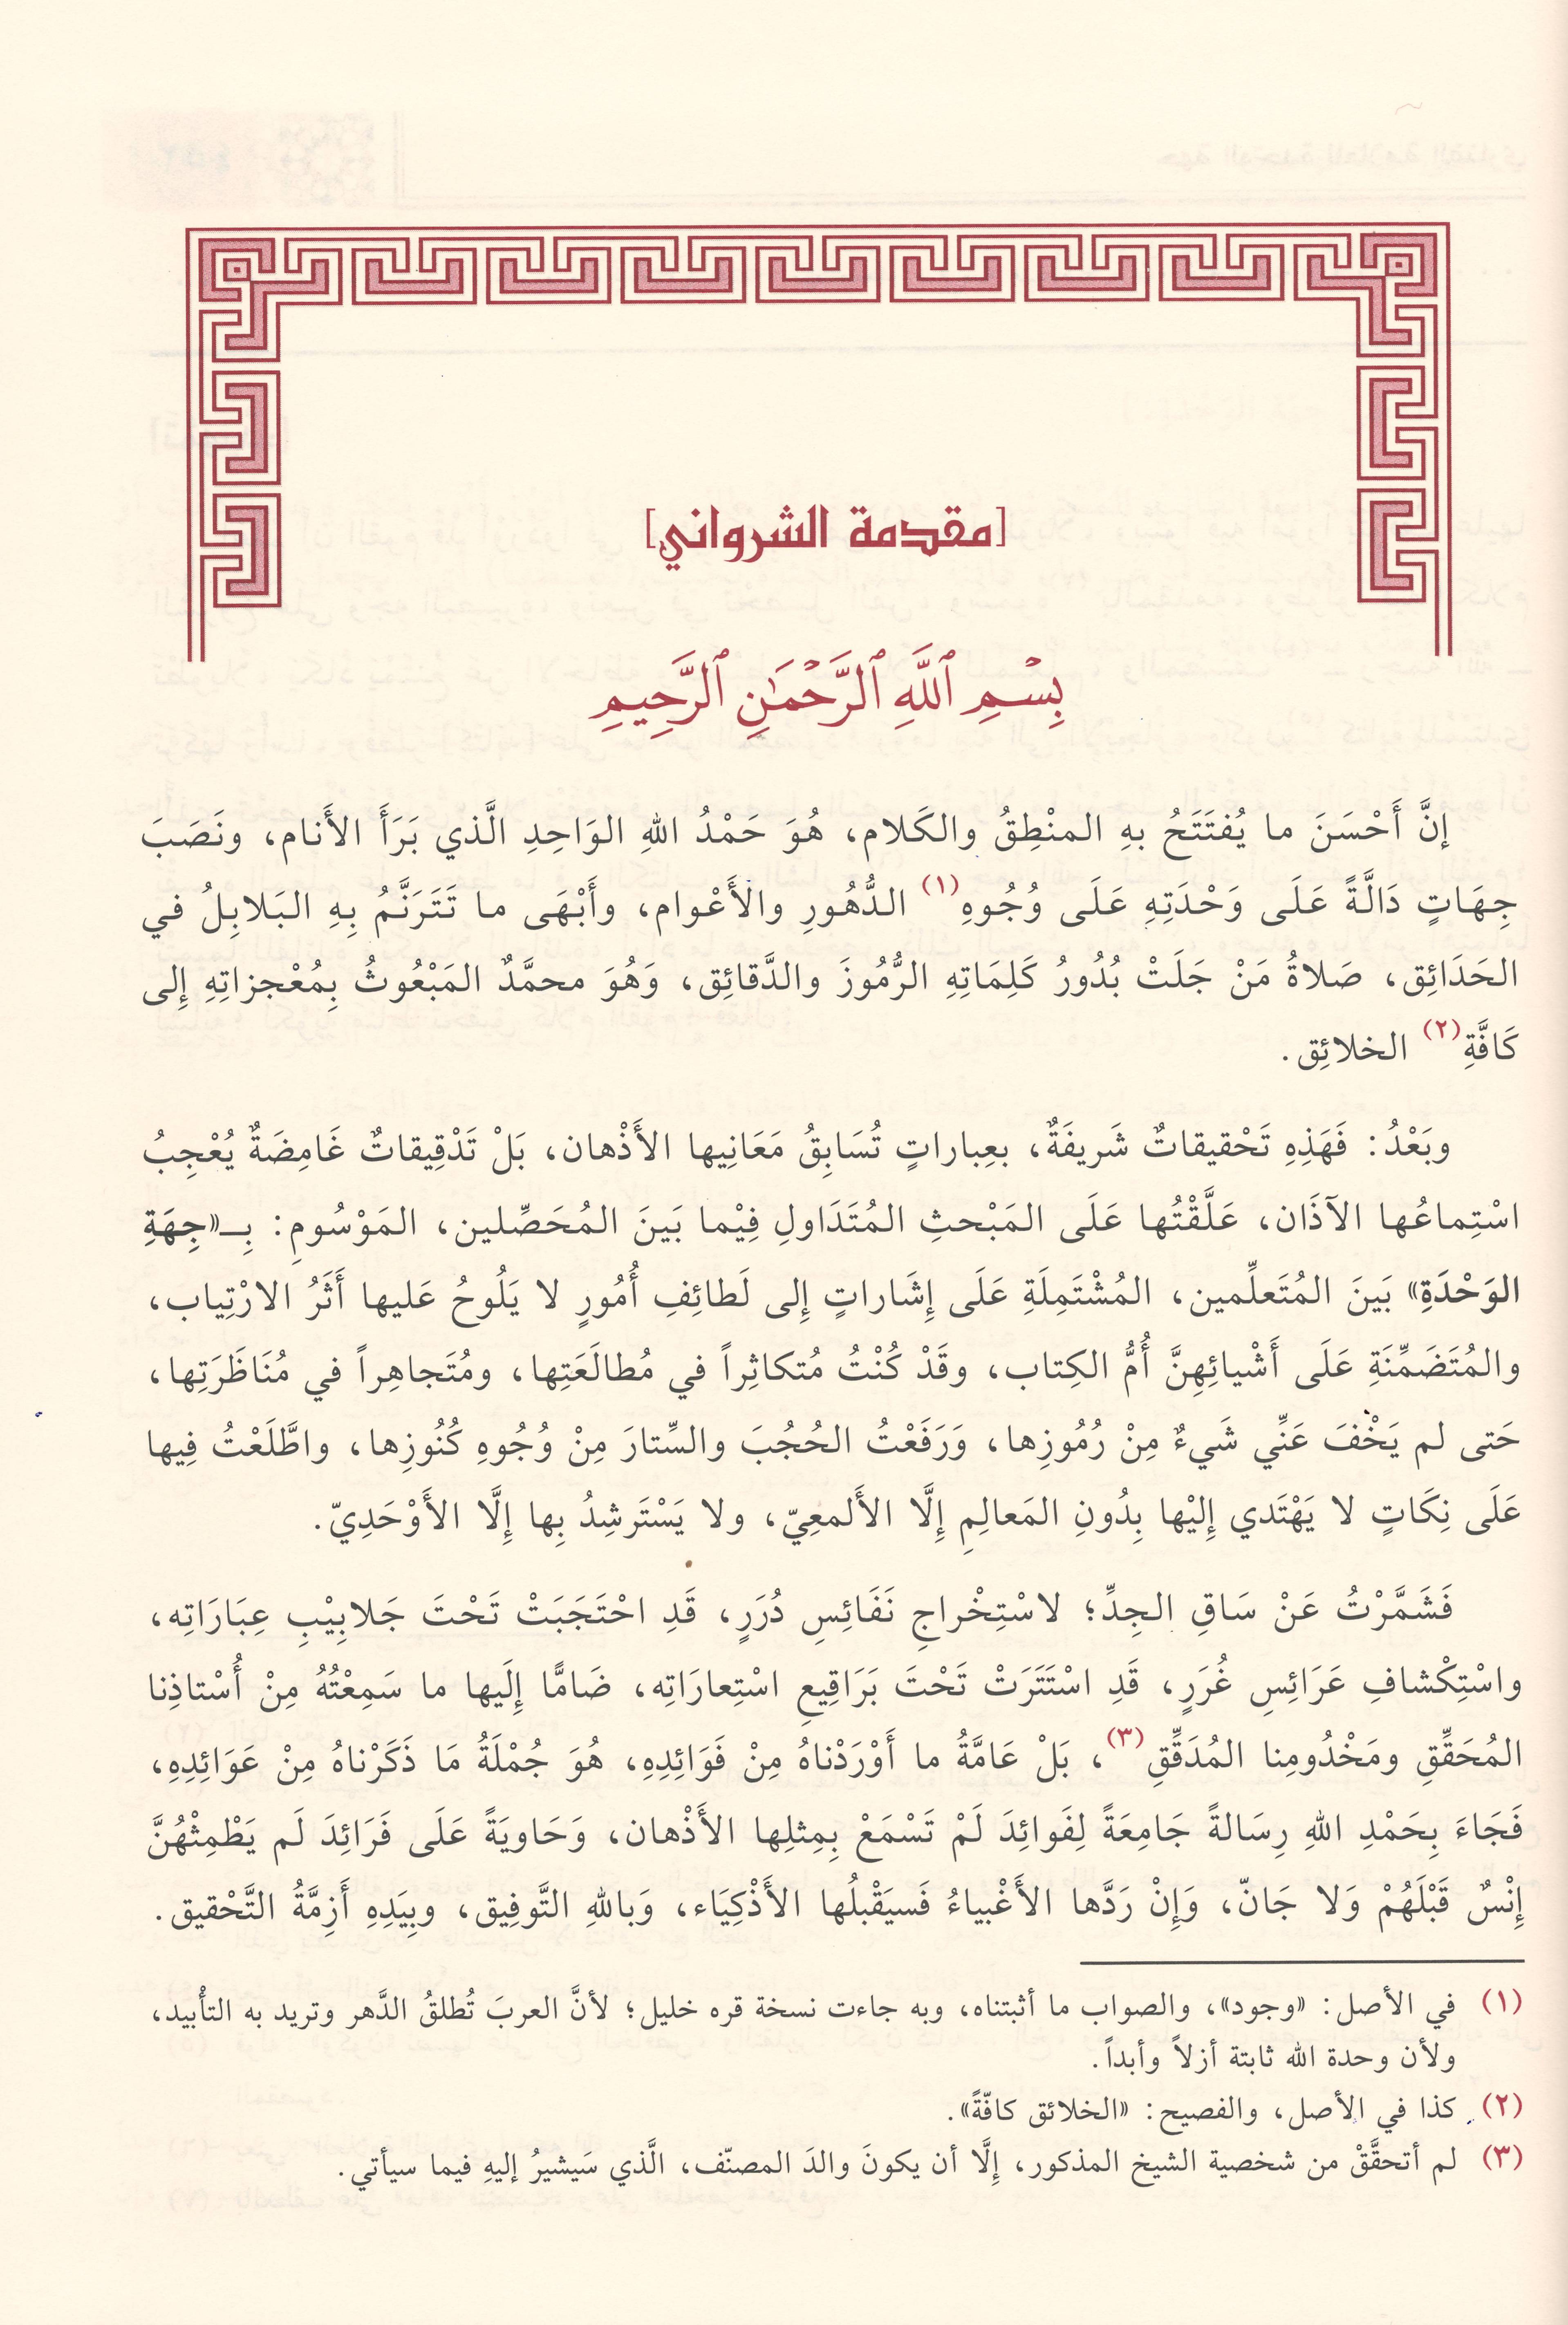 [مقدمة الشرواني]
بِسْمِ ٱللَّهِ ٱلرَّحْمَٰنِ ٱلرَّحِيمِ
إنَّ أَحْسَنَ ما يُفتَتَحُ بهِ المنْطِقُ والكَلام، هُوَ حَمْدُ اللهِ الوَاحِدِ الَّذي بَرَأَ الأَنام، ونَصَبَ
جِهَاتٍ دَالَّةً عَلَى وَحْدَتِهِ عَلَى وُجُوهِ(١) الدُّهُورِ والأَعْوام، وأَبْهَى ما تَتَرَنَّمُ بِهِ البَلابِلُ في
الحَدَائِق، صَلاةُ مَنْ جَلَتْ بُدُورُ كَلِمَاتِهِ الرُّمُوزَ والدَّقائِق، وَهُوَ محمَّدٌ المَبْعُوثُ بِمُعْجزاتِهِ إِلى
كَافَّةِ(٢) الخلائِق.
وبَعْدُ: فَهَذِهِ تَحْقيقاتٌ شَريفَةٌ، بعِباراتٍ تُسَابِقُ مَعَانِيها الأَذْهان، بَلْ تَدْقِيقاتٌ غَامِضَةٌ يُعْجِبُ
اسْتِماعُها الآذَان، عَلَّقْتُها عَلَى المَبْحثِ المُتَدَاولِ فِيْما بَينَ المُحَصِّلين، المَوْسُومِ: بِـ«جِهَةِ
الوَحْدَةِ» بَينَ المُتَعلِّمين، المُشْتَمِلَةِ عَلَى إِشَاراتٍ إِلى لَطائِفِ أُمُورٍ لا يَلُوحُ عَليها أَثَرُ الارْتِياب،
والمُتَضَمِّنَةِ عَلَى أَشْيائِهِنَّ أُمُّ الكِتاب، وقَدْ كُنْتُ مُتكاثِراً في مُطالَعَتِها، ومُتَجاهِراً في مُنَاظَرَتِها،
حَتى لم يَخْفَ عَنِّي شَيءٌ مِنْ رُمُوزِها، وَرَفَعْتُ الحُجُبَ والسِّتارَ مِنْ وُجُوهِ كُنُوزِها، واطَّلَعْتُ فِيها
عَلَى نِكَاتٍ لا يَهْتَدي إِلَيْها بِدُونِ المَعالِمِ إِلَّا الأَلمعِيّ، ولا يَسْتَرشِدُ بِها إِلَّا الأَوْحَدِيّ.
فَشَمَّرْتُ عَنْ سَاقِ الجِدِّ؛ لاسْتِخْراجِ نَفَائِسِ دُرَرٍ، قَدِ احْتَجَبَتْ تَحْتَ جَلابِيْبِ عِبَارَاتِه،
واسْتِكْشافِ عَرَائِسِ غُرَرٍ، قَدِ اسْتَتَرَتْ تَحْتَ بَرَاقِيعِ اسْتِعارَاتِه، ضَامًّا إِلَيها ما سَمِعْتُهُ مِنْ أُسْتاذِنا
المُحَقِّقِ ومَخْدُومِنا المُدَقِّقِ(٣)، بَلْ عَامَّةُ ما أَوْرَدْناهُ مِنْ فَوَائِدِهِ، هُوَ جُمْلَةُ مَا ذَكَرْناهُ مِنْ عَوَائِدِهِ،
فَجَاءَ بِحَمْدِ اللهِ رِسَالةً جَامِعَةً لِفَوائِدَ لَمْ تَسْمَعْ بِمِثلِها الأَذْهان، وَحَاويَةً عَلَى فَرَائِدَ لَم يَطْمِثْهُنَّ
إِنْسٌ قَبْلَهُمْ وَلا جَانّ، وَإِنْ رَدَّها الأَغْبياءُ فَسيَقْبلُها الأَذْكِيَاء، وَباللهِ التَّوفِيق، وبِيَدِهِ أَزِمَّةُ التَّحْقيق.
(١) في الأصل: «وجود»، والصواب ما أثبتناه، وبه جاءت نسخة قره خليل؛ لأنَّ العربَ تُطلقُ الدَّهر وتريد به التأْبيد،
ولأن وحدة الله ثابتة أزلاً وأبداً.
(٢) كذا في الأصل، والفصيح: «الخلائق كافّةً».
(٣) لم أتحقَّقْ من شخصية الشيخ المذكور، إِلَّا أن يكونَ والدَ المصنّف، الَّذي سَيشيرُ إليهِ فيما سيأتي.